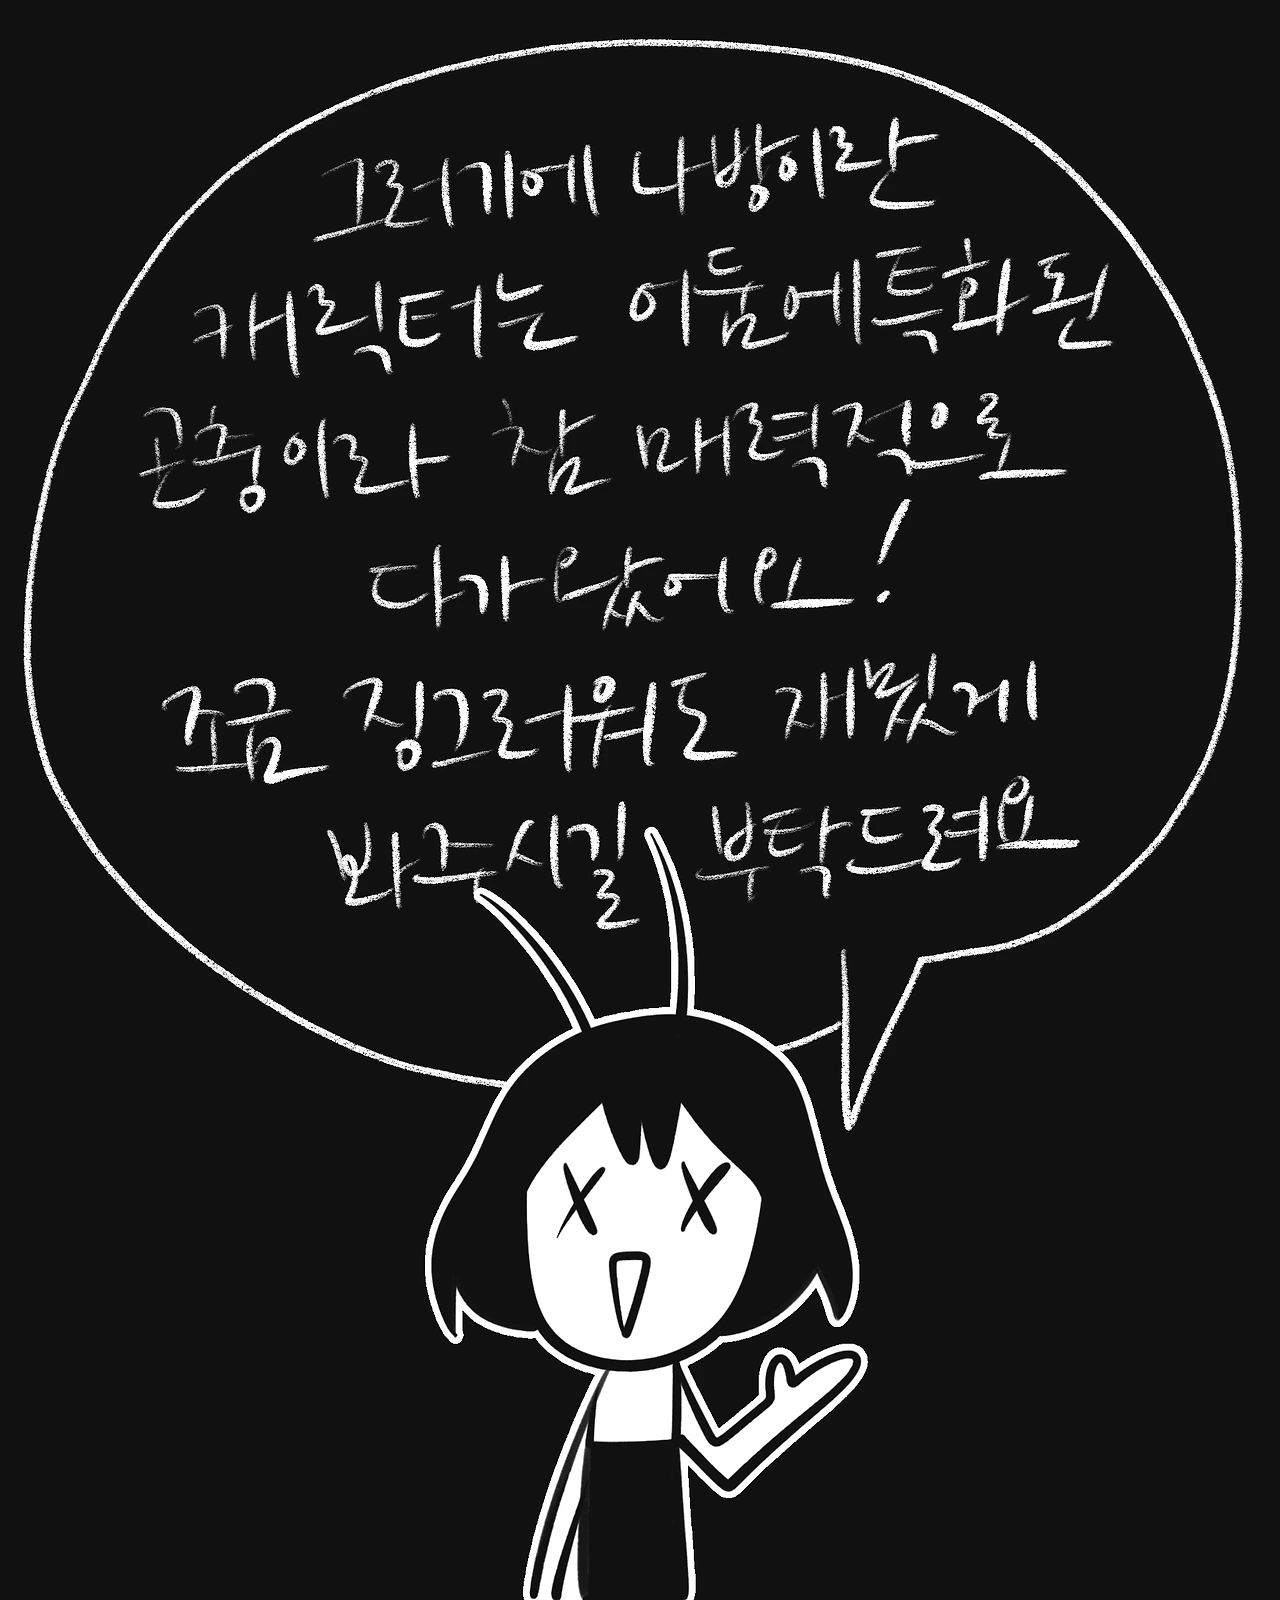 그러기에 나방이란
캐릭터는 어둠에특화된
곤충이라 참 매력적으로
다가왔어요!
조금 징그러워도 재밌게
봐주시길 부탁드려요